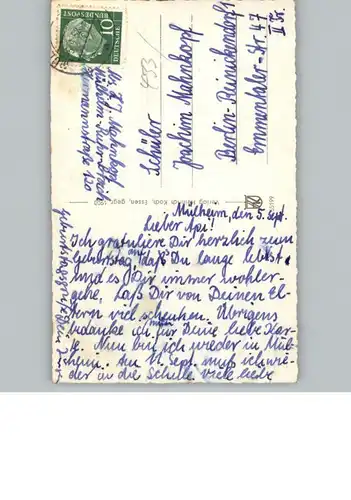 Mülheim, den 5. Sept.
Lieber Api!
Ich gratuliere Dir herzlich zum
Geburtstag auf daß Du lange lebst
und es Dir immer wohler-
gehe, laß Dir von Deinen El-
tern viel schenken. Übrigens
bedanke ich mich für Deine liebe Kar-
te. Nun bin ich wieder in Mül-
heim. Am 11. Sept. muß ich wie-
der in die Schule. Viele liebe
Geburtstagsgrüße
Schüler
Joachim Mahnkopf
Berlin-Reinickendorf
Emmentaler-Str. 47
Mahnkopf
Mülheim-Ruhr
straße 120
DEUTSCHE
BUNDESPOST
10
Verlag Heinrich Koch, Essen, gegr. 1902